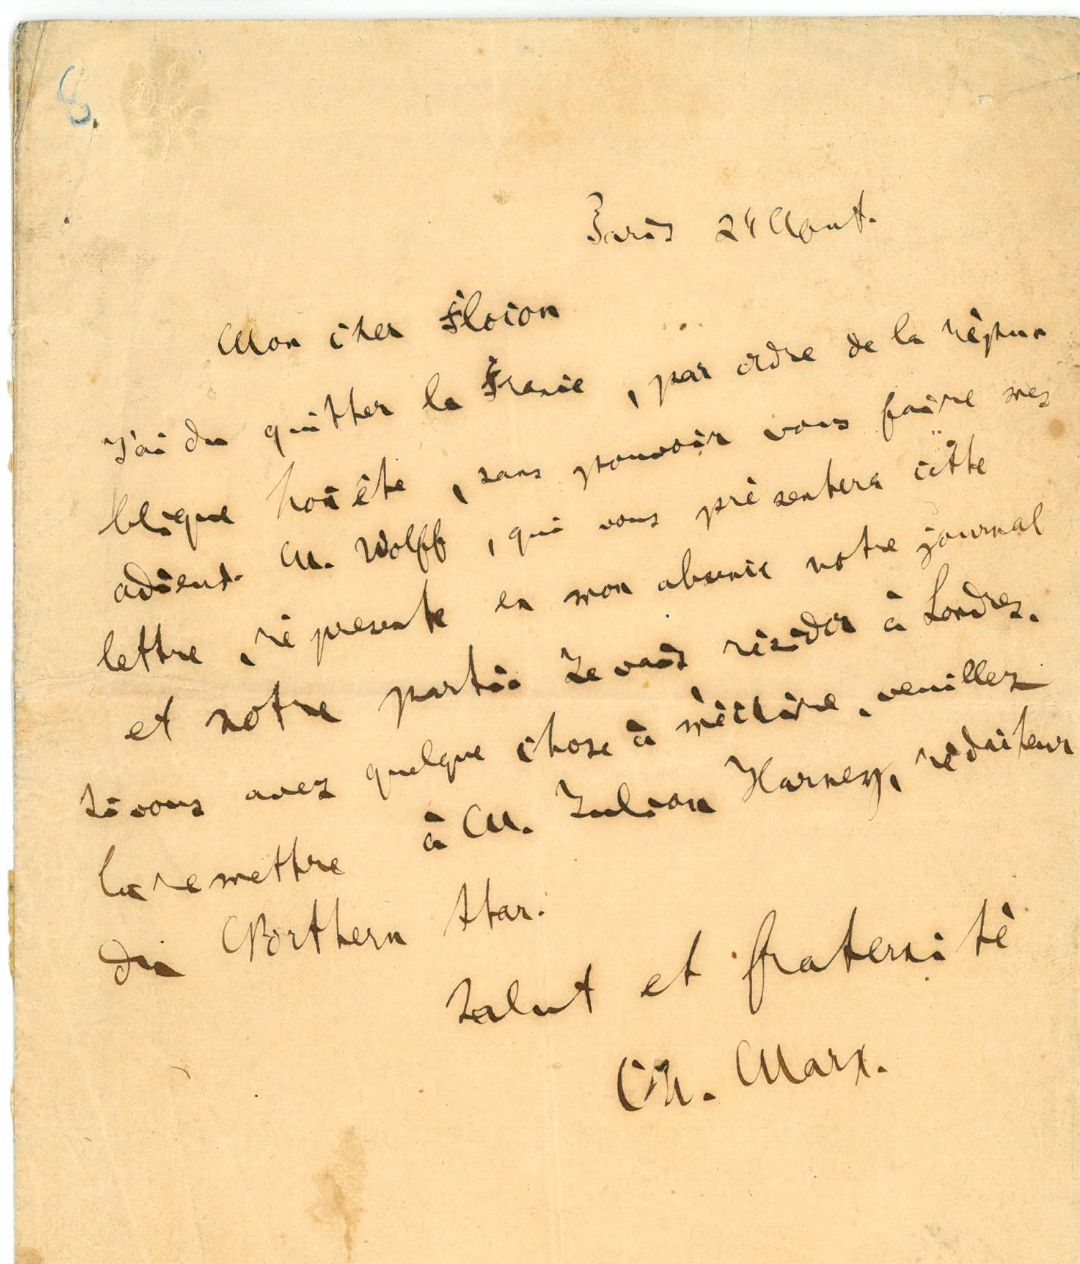 8.
Paris 24 Aout.
Mon cher Flocon
J'ai du quitter la France, par ordre de la répu
blique honête, sans pouvoir vous faire mes
adieux. M. Wolff, qui vous présentera cette
lettre, représente en mon absence notre journal
et notre parti. Je vais résider à Londres.
Si vous avez quelque chose à m'écrire, veuillez
la remettre à M. Julian Harney, rédacteur
du Northern Star.
Salut et fraternité
Ch. Marx.